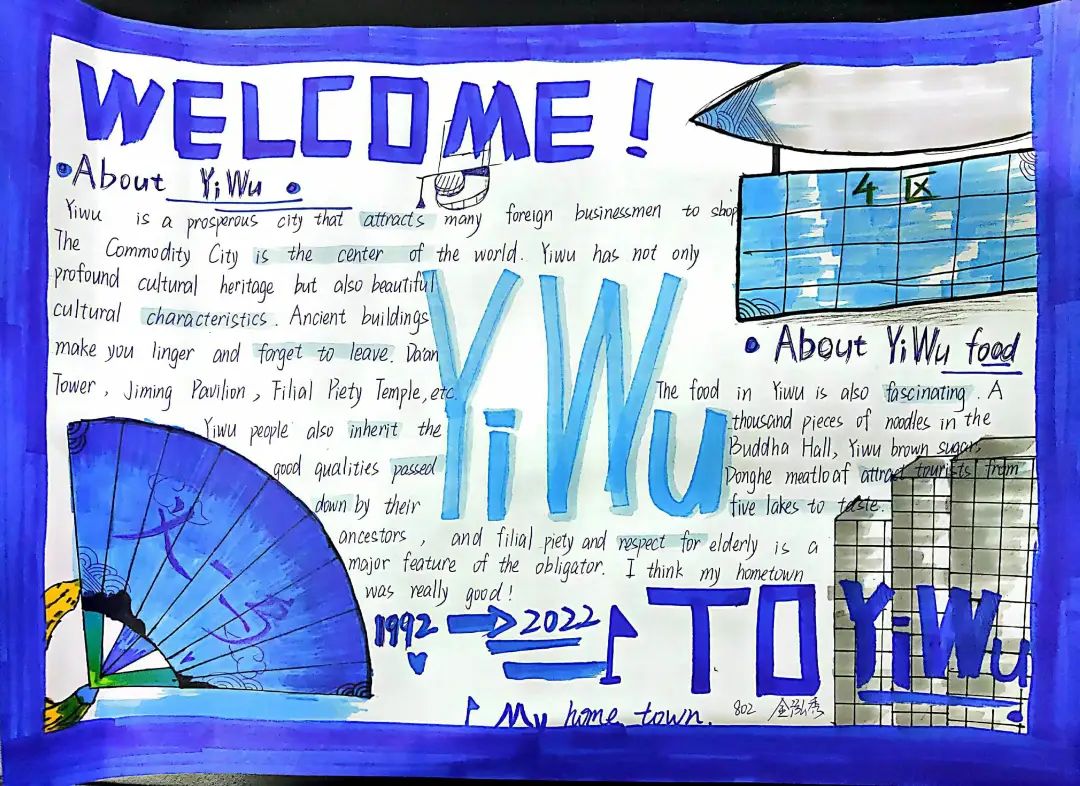 WELCOME!
•About YiWu •
Yiwu is a prosperous city that attracts many foreign businessmen to shop
The Commodity City is the center of the world. Yiwu has not only
profound cultural heritage but also beautiful
cultural characteristics. Ancient buildings
make you linger and forget to leave. Da'an
Tower, Jiming Pavilion, Filial Piety Temple, etc.
Yiwu people also inherit the
good qualities passed
down by their
ancestors, and filial piety and respect for elderly is a
major feature of the obligator. I think my hometown
was really good!
YiWu
4区
• About YiWu food
The food in Yiwu is also fascinating. A
thousand pieces of noodles in the
Buddha Hall, Yiwu brown sugar,
Donghe meatloaf attract tourists from
five lakes to taste.
义乌
1992 → 2022
TO YiWu
My home town.
802